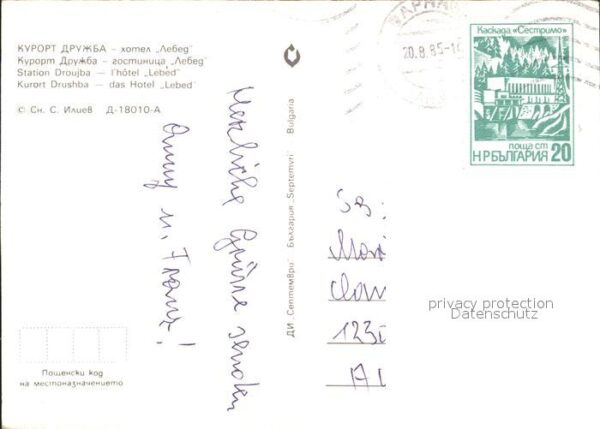 КУРОРТ ДРУЖБА – хотел „Лебед"
Курорт Дружба – гостиница „Лебед"
Station Droujba — l'hôtel „Lebed"
Kurort Drushba — das Hotel „Lebed"
© Сн. С. Илиев Д-18010-А
Herzliche Grüsse senden
Anny u. Franz!
Пощенски код
на местоназначението
ДИ „Септември" България „Septemvri" Bulgaria
ВАРНА
20.8.85-1
Каскада „Сестримо"
поща ст
НРБЪЛГАРИЯ 20
123
privacy protection
Datenschutz